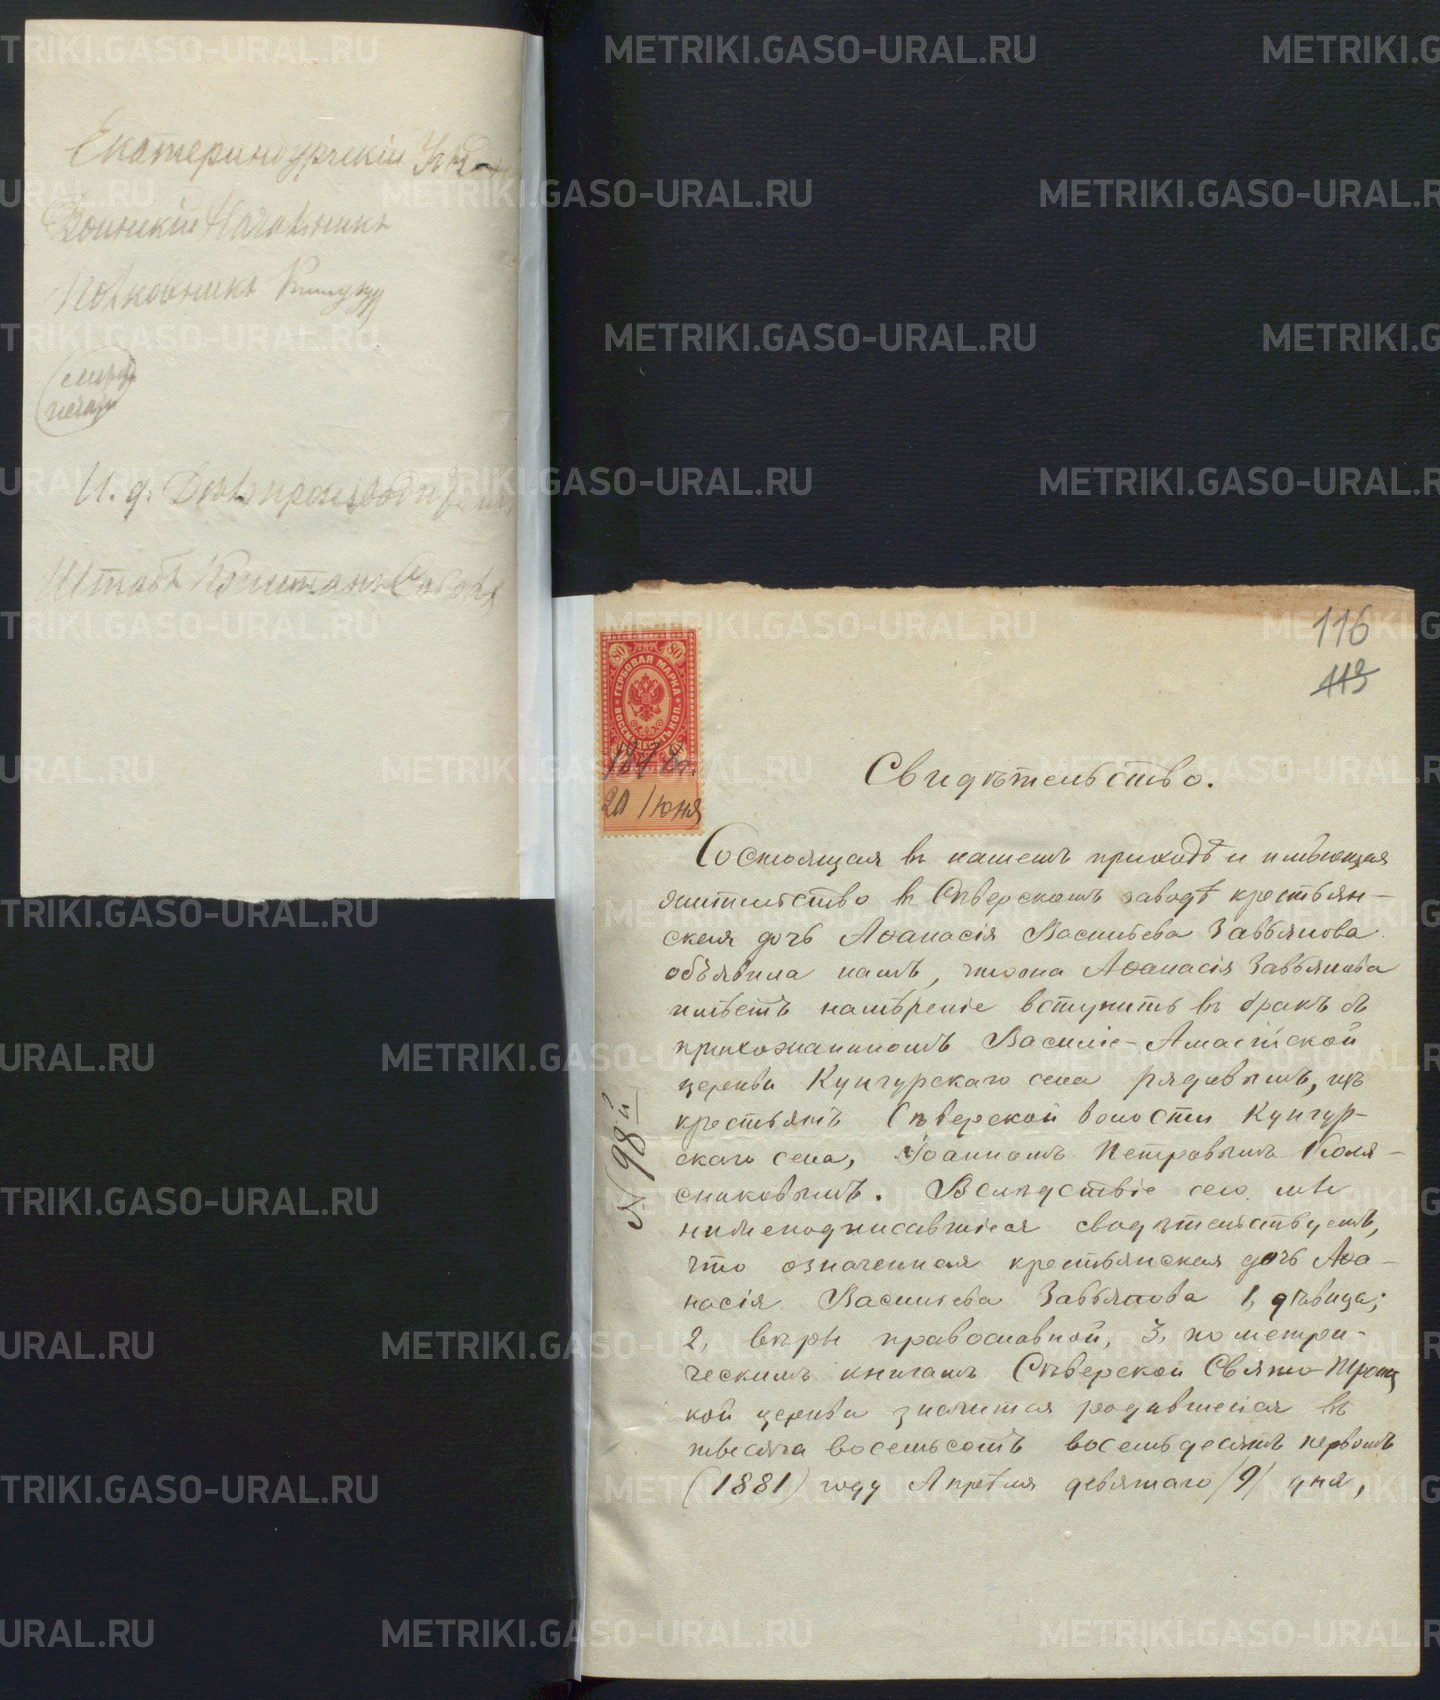 Екатеринбургскій Уѣзд
Воинскій Начальникъ
Полковникъ
мѣсто
печати
И. д. Дѣлопроизводителя,
Штабсъ Капитанъ
116
113
80 80
ГЕРБОВАЯ МАРКА
ВОСЕМЬДЕСЯТЪ КОП.
20 Іюня
Свидѣтельство.
Состоящая въ нашемъ приходѣ и имѣющая
жительство въ Сѣверскомъ заводѣ крестьян-
ская дочь Аѳанасія Васильева Завьялова
объявила намъ, что она Аѳанасія Завьялова
имѣетъ намѣреніе вступить въ бракъ съ
прихожаниномъ Василіе-Амасійской
церкви Кунгурскаго села рядовымъ, изъ
крестьянъ Сѣверской волости Кунгур-
скаго села, Іоанномъ Петровымъ Коля-
сниковымъ. Вслѣдствіе сего мы
нижеподписавшіеся свидѣтельствуемъ,
что означенная крестьянская дочь Аѳа-
насія Васильева Завьялова 1, дѣвица;
2, вѣры православной, 3, по метри-
ческимъ книгамъ Сѣверской Свято-Троиц
кой церкви значится родившеюся въ
тысяча восемьсотъ восемьдесятъ первомъ
(1881) году Апрѣля девятаго /9/ дня,
№ 98й
METRIKI.GASO-URAL.RU